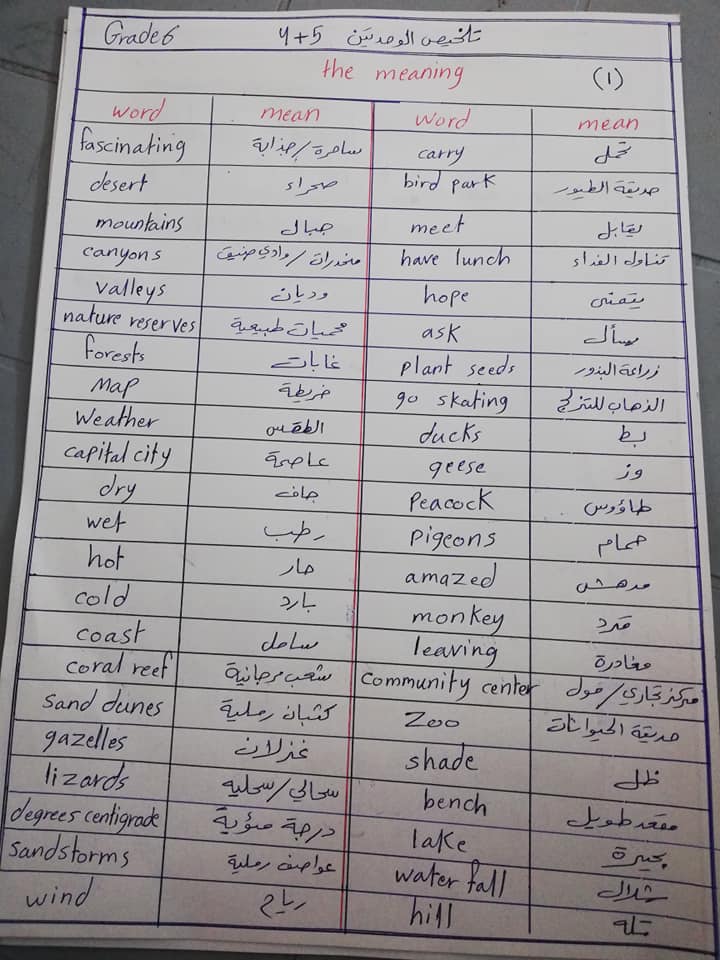 Grade 6 4+5 تلخيص الوحدتين
the meaning (1)
word mean word mean
fascinating ساحرة/جذابة carry تحمل
desert صحراء bird park حديقة الطيور
mountains جبال meet يقابل
canyons منحدرات/وادي ضيق have lunch تناول الغداء
valleys وديان hope يتمنى
nature reserves محميات طبيعية ask يسأل
forests غابات plant seeds زراعة البذور
map خريطة go skating الذهاب للتزلج
weather الطقس ducks بط
capital city عاصمة geese وز
dry جاف peacock طاؤوس
wet رطب pigeons حمام
hot حار amazed مدهش
cold بارد monkey قرد
coast ساحل leaving مغادرة
coral reef شعب مرجانية community center مركز تجاري/مول
sand dunes كثبان رملية zoo حديقة الحيوانات
gazelles غزلان shade ظل
lizards سحالي/سحليه bench مقعد طويل
degrees centigrade درجة مئوية lake بحيرة
sandstorms عواصف رملية water fall شلال
wind رياح hill تله